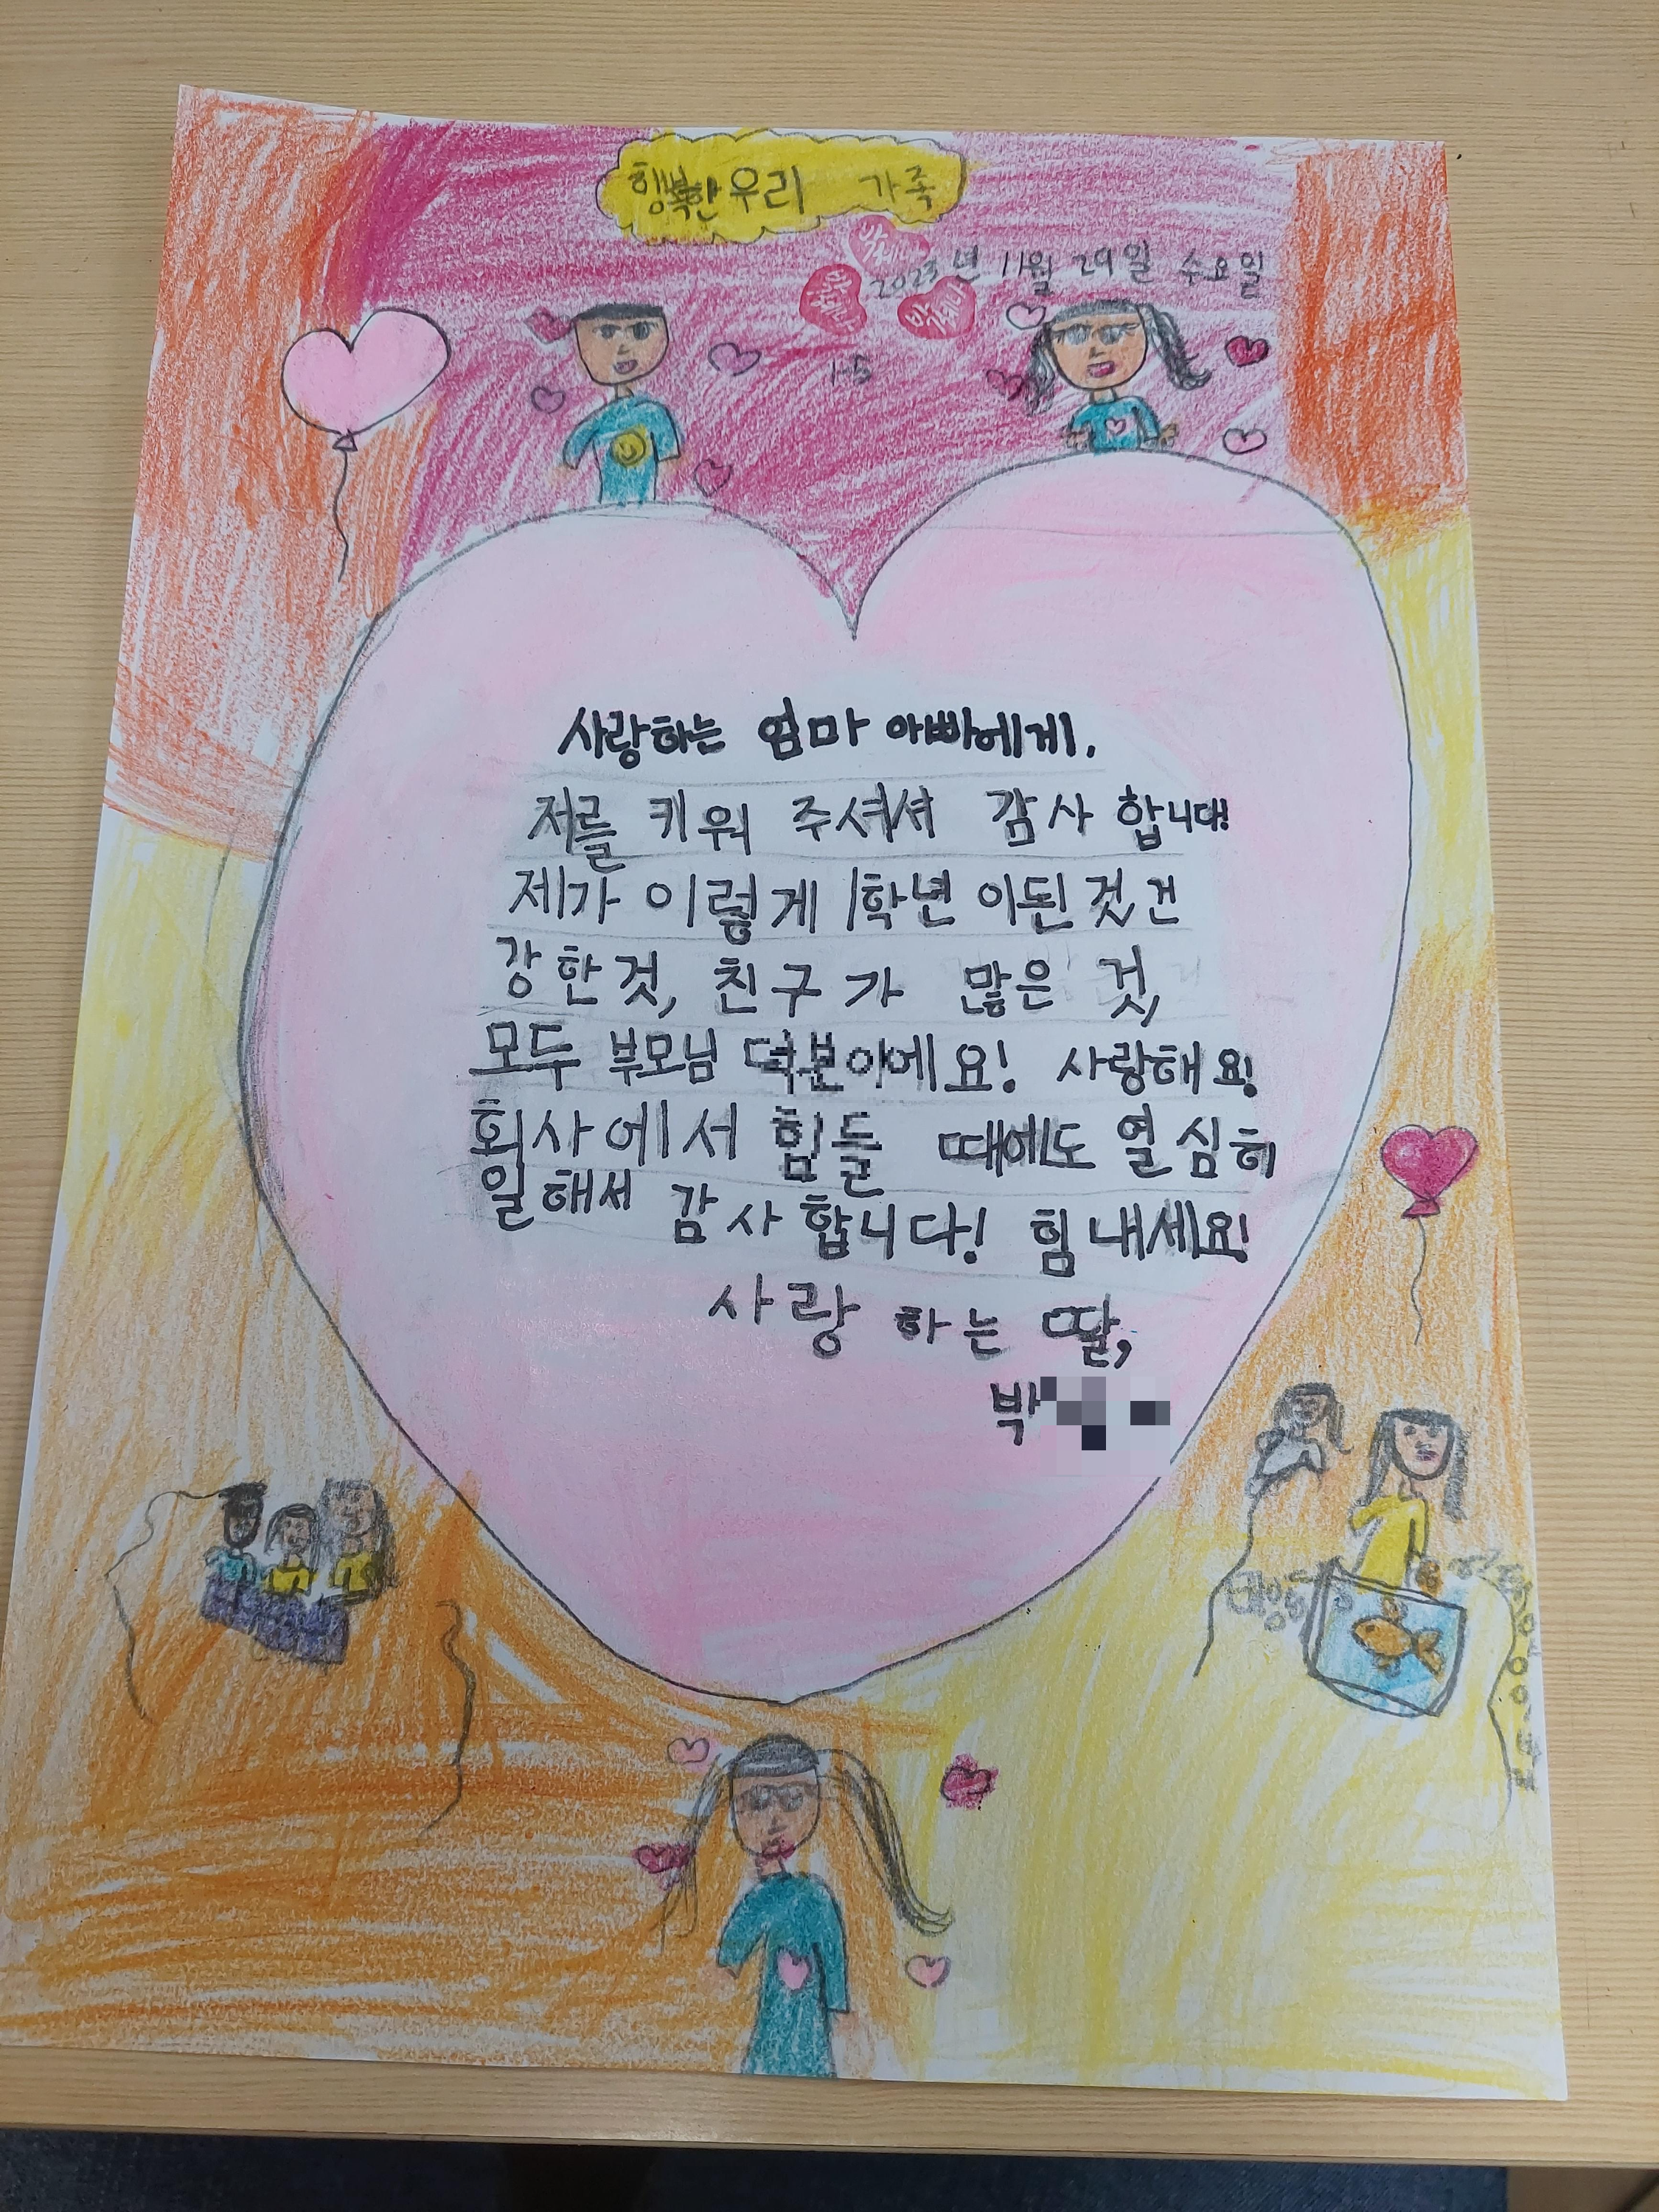 행복한 우리 가족
2023년 11월 29일 수요일
1-5
사랑하는 엄마 아빠에게.
저를 키워 주셔셔 감사 합니다!
제가 이렇게 1학년 이된 것, 건
강 한 것, 친구가 많은 것,
모두 부모님 덕분이에요! 사랑해요!
회사에서 힘들 때에도 열심히
일해서 감사합니다! 힘내세요!
사랑하는 딸,
박